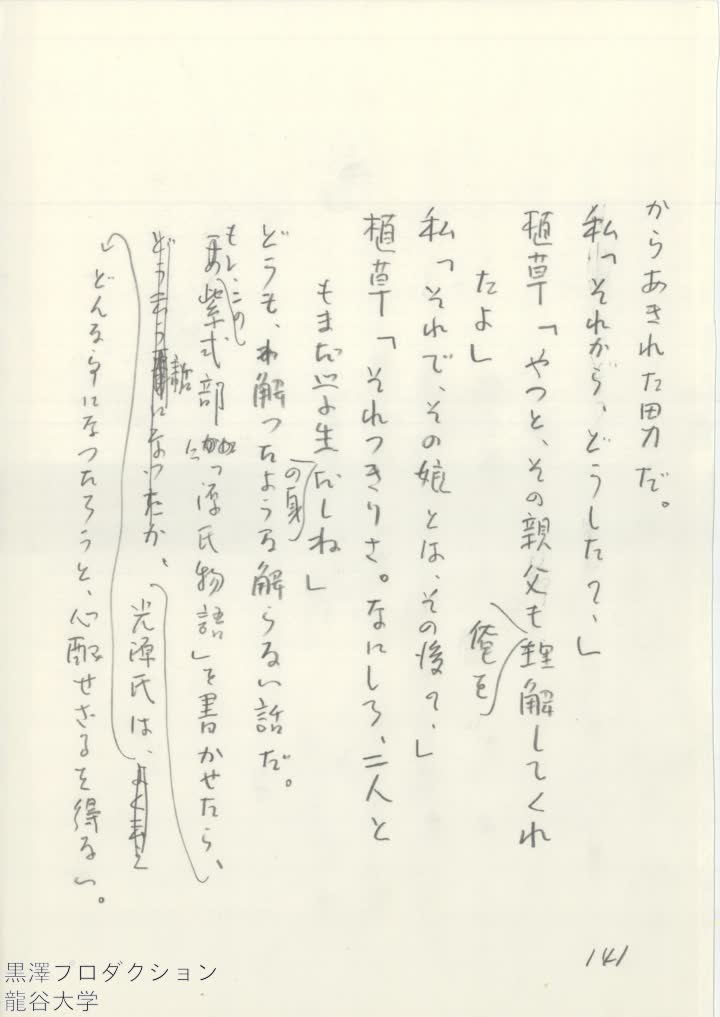 からあきれた男だ。
私「それから、どうした？」
植草「やつと、その親父も俺を理解してくれ
たよ」
私「それで、その娘とは、その後？」
植草「それつきりさ。なにしろ、二人と
もまだの身だしね」
どうも、解つたような解らない話だ。
もし、この紫式部に「源氏物語」を書かせたら、
光源氏は、
どんな事になつたろうと、心配せざるを得ない。
141
黒澤プロダクション
龍谷大学